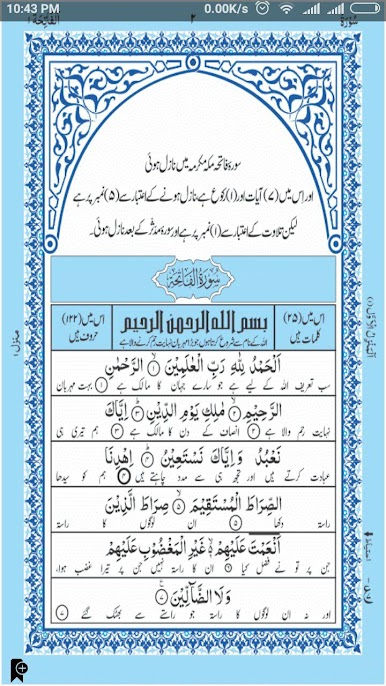 10:43 PM 0.00K/s
سُوْرَةُ ٢ اَلْفَاتِحَة١
سورۂ فاتحہ مکہ مکرمہ میں نازل ہوئی
اور اس میں (۷) آیات اور (۱) رکوع ہے نازل ہونے کے اعتبار سے (۵) نمبر پر ہے
لیکن تلاوت کے اعتبار سے (۱) نمبر پر ہے اور سورۂ مدثر کے بعد نازل ہوئی۔
سُوْرَةُ الْفَاتِحَةِ
اس میں (۲۵) کلمات ہیں
بسم الله الرحمن الرحيم
اللہ کے نام سے شروع کرتا ہوں جو بڑا مہربان نہایت رحم کرنے والا ہے
اس میں (۱۲۲) حروف ہیں
اَلْحَمْدُ لِلّٰهِ رَبِّ الْعٰلَمِيْنَ ۙ﴿۱﴾ الرَّحْمٰنِ
سب تعریف اللہ کے لیے ہے جو سارے جہان کا مالک ہے ﴿۱﴾ بہت مہربان
الرَّحِيْمِ ۙ﴿۲﴾ مٰلِكِ يَوْمِ الدِّيْنِ ؕ﴿۳﴾ اِيَّاكَ
نہایت رحم والا ہے ﴿۲﴾ انصاف کے دن کا مالک ہے ﴿۳﴾ ہم تیری ہی
نَعْبُدُ وَ اِيَّاكَ نَسْتَعِيْنُ ؕ﴿۴﴾ اِهْدِنَا
عبادت کرتے ہیں اور تجھ ہی سے مدد چاہتے ہیں ﴿۴﴾ ہم کو سیدھا
الصِّرَاطَ الْمُسْتَقِيْمَ ۙ﴿۵﴾ صِرَاطَ الَّذِيْنَ
راستہ دکھا ﴿۵﴾ ان لوگوں کا راستہ
اَنْعَمْتَ عَلَيْهِمْ ۙ﴿۶﴾ غَيْرِ الْمَغْضُوْبِ عَلَيْهِمْ
جن پر تو نے فضل کیا ﴿۶﴾ ان کا راستہ نہیں جن پر تیرا غضب ہوا،
وَلَا الضَّآلِّيْنَ ﴿۷﴾
اور نہ ان لوگوں کا راستہ جو راستے سے بھٹک گئے ﴿۷﴾
منزل۱